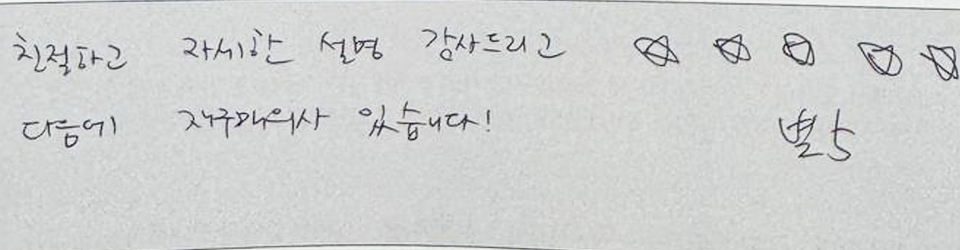 친절하고 자세한 설명 감사드리고 ☆☆☆☆☆
다음에 재구매의사 있습니다! 별5